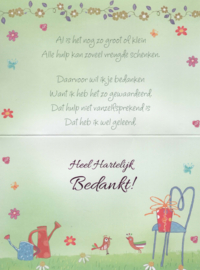 Al is het nog zo groot of klein
Alle hulp kan zoveel vreugde schenken.
Daarvoor wil ik je bedanken
Want ik heb het zo gewaardeerd.
Dat hulp niet vanzelfsprekend is
Dat heb ik wel geleerd.
Heel Hartelijk
Bedankt!